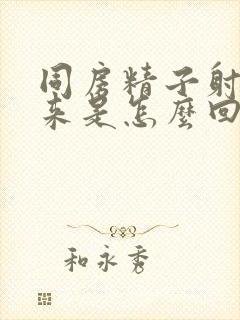 同房精子射
来是怎麼回
和永秀